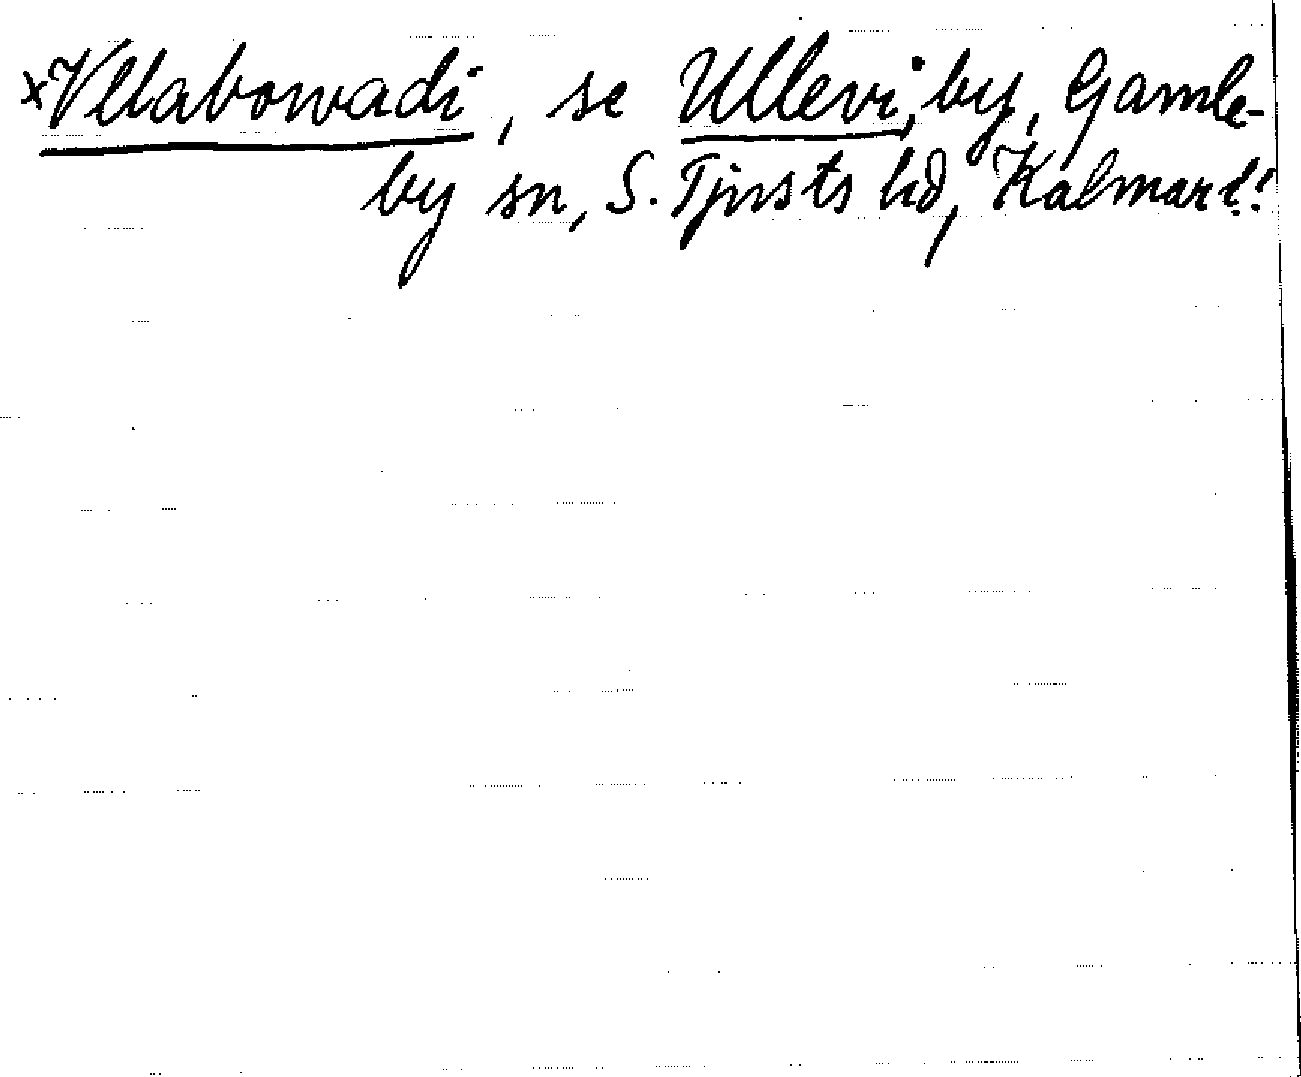 ×Vllabowadi, se Ullevi, by, Gamle-
by sn, S. Tjusts hd, Kalmar l.